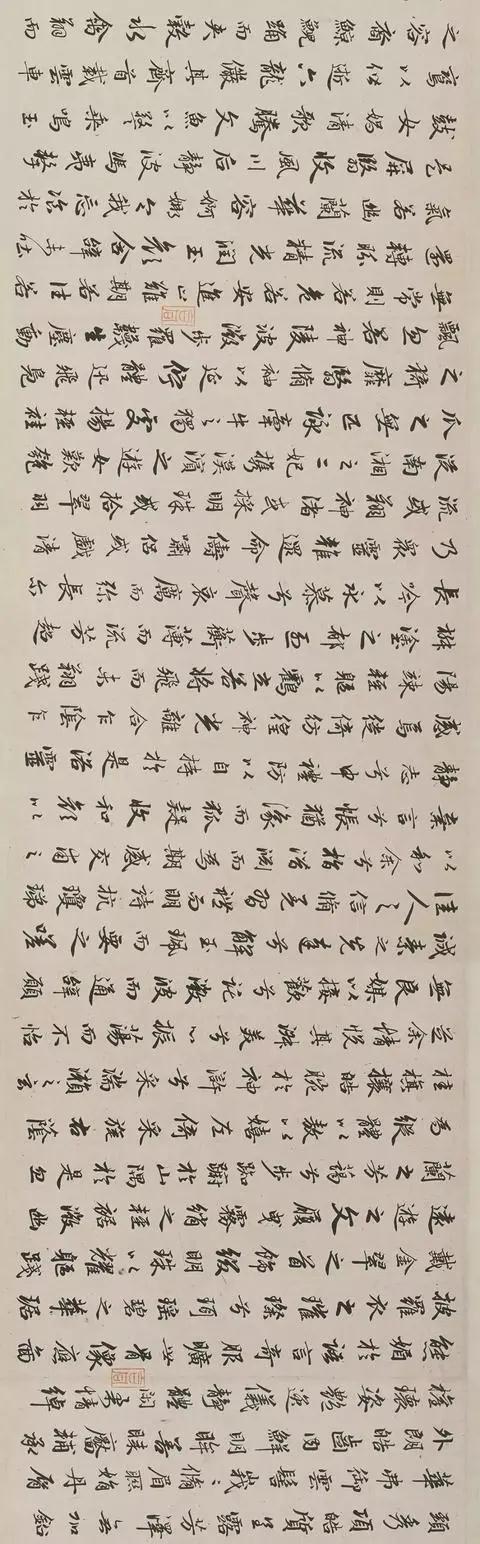 頸秀項皓質呈露芳澤無加鉛
華弗御雲髻峩峩脩眉聯娟丹脣
外朗皓齒內鮮明眸善睞靨輔承
權瓌姿艷逸儀靜體閑柔情綽
態媚於語言奇服曠世骨像應圖
披羅衣之璀璨兮珥瑤碧之華琚
戴金翠之首飾綴明珠以耀軀踐
遠遊之文履曳霧綃之輕裾微幽
蘭之芳藹兮步踟躕於山隅於是忽
焉縱體以遨以嬉左倚采旄右蔭
桂旗攘皓腕於神滸兮采湍瀨之玄
芝余情悅其淑美兮心振蕩而不怡
無良媒以接歡兮託微波而通辭願
誠素之先達兮解玉珮而要之嗟
佳人之信脩羌習禮而明詩抗瓊珶
以和余兮指潛淵而為期感交甫之
棄言兮悵猶豫而狐疑收和顏以
靜志兮申禮防以自持於是洛靈
感焉徙倚彷徨神光離合乍陰乍
陽竦輕軀以鶴立若將飛而未翔踐
椒塗之郁烈步蘅薄而流芳超
長吟以永慕兮聲哀厲而彌長尒
乃衆靈雜遝命儔嘯侶或戲清
流或翔神渚或採明珠或拾翠羽
從南湘之二妃攜漢濱之遊女歎匏
瓜之無匹詠牽牛之獨處揚輕袿
之猗靡翳脩袖以延佇體迅飛鳧
飄忽若神陵波微步羅韈生塵動
無常則若危若安進止難期若往若
還轉眄流精光潤玉顏含辭未吐
氣若幽蘭華容婀娜令我忘飡於
是屏翳收風川后靜波馮夷擊
鼓女媧清歌騰文魚以警乘鳴玉
鸞以偕逝六龍儼其齊首載雲車
之容裔鯨鯢踊而夾轂水禽翔而